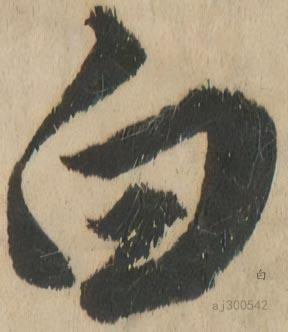 白
白
aj300542